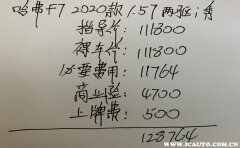 哈弗F7 2020款 1.5T 两驱i秀
指导价: 111800
裸车价: 111800
必要费用: 11764
商业险: 4700
上牌费: 500
128764
WWW.JCAUTO.COM.CN